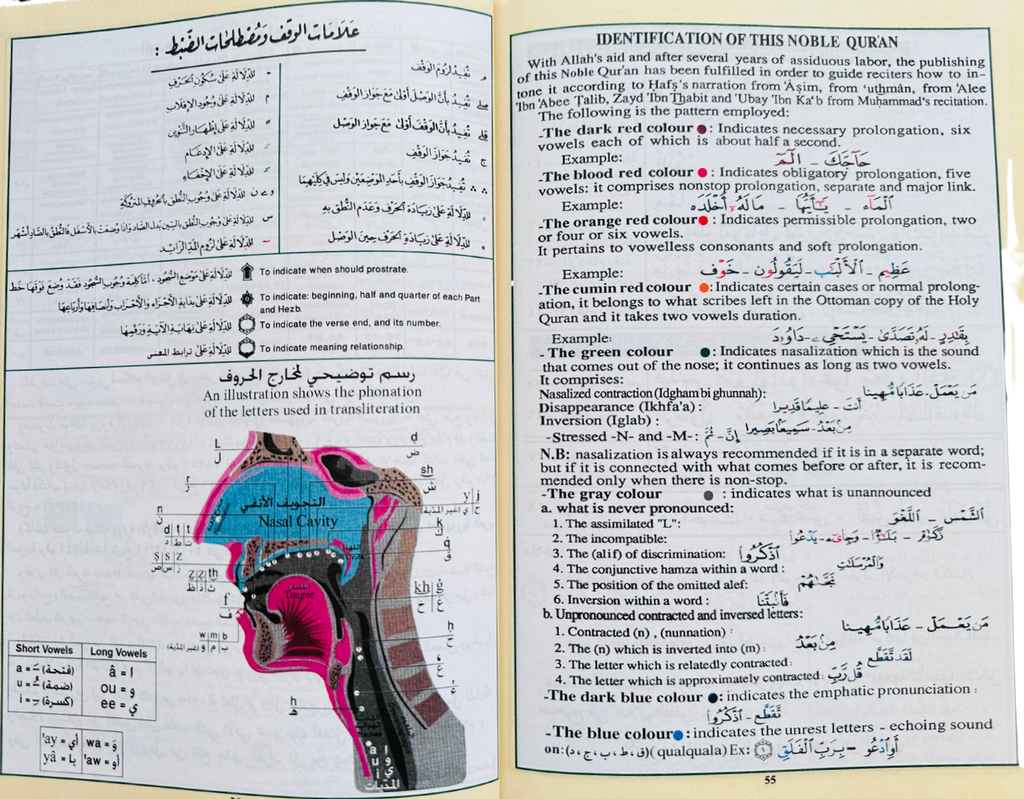 عَلَامَات الوَقف وَمُصْطَلحَات الضَّبْط :
م تُفِيدُ لُزُومَ الوَقْفِ
صلى تُفِيدُ بِأَنَّ الوَصْلَ أَوْلَىٰ مَعَ جَوَازِ الوَقْفِ
قلى تُفِيدُ بِأَنَّ الوَقْفَ أَوْلَىٰ مَعَ جَوَازِ الوَصْلِ
ج تُفِيدُ جَوَازَ الوَقْفِ
∴ ∴ تُفِيدُ جَوَازَ الوَقْفِ بِأَحَدِ المَوْضِعَيْنِ وَلَيْسَ فِي كِلَيْهِمَا
للدِّلَالَةِ عَلَىٰ زِيَادَةِ الحَرْفِ وَعَدَمِ النُّطْقِ بِهِ
للدِّلَالَةِ عَلَىٰ زِيَادَةِ الحَرْفِ حِينَ الوَصْلِ
للدِّلَالَةِ عَلَىٰ سُكُونِ الحَرْفِ
م للدِّلَالَةِ عَلَىٰ وُجُودِ الإِقْلَابِ
للدِّلَالَةِ عَلَىٰ إِظْهَارِ التَّنْوِينِ
للدِّلَالَةِ عَلَىٰ الإِدْغَامِ
للدِّلَالَةِ عَلَىٰ الإِخْفَاءِ
للدِّلَالَةِ عَلَىٰ وُجُوبِ النُّطْقِ بِالحُرُوفِ المَتْرُوكَةِ
س للدِّلَالَةِ عَلَىٰ وُجُوبِ النُّطْقِ بِالسِّينِ بَدَلَ الصَّادِ وَإِذَا وُضِعَتْ بِالأَسْفَلِ فَالنُّطْقُ بِالصَّادِ أَشْهَر
للدِّلَالَةِ عَلَىٰ لُزُومِ المَدِّ الزَّائِد
للدِّلَالَةِ عَلَىٰ مَوْضِعِ السُّجُودِ ، أَمَّا كَلِمَةُ وُجُوبِ السُّجُود فَقَدْ وُضِعَ فَوْقَهَا خَط To indicate when should prostrate.
للدِّلَالَةِ عَلَىٰ بِدَايَةِ الأَجْزَاءِ وَالأَحْزَابِ وَأَنْصَافِهَا وَأَرْبَاعِهَا To indicate: beginning, half and quarter of each Part
and Hezb.
للدِّلَالَةِ عَلَىٰ نِهَايَةِ الآيَةِ وَرَقْمِهَا To indicate the verse end, and its number.
للدِّلَالَةِ عَلَىٰ ترابط المعنى To indicate meaning relationship.
رسم توضيحي لمخارج الحروف
An illustration shows the phonation
of the letters used in transliteration
L
ل
r
ر
n
ن
d t t
د ت ط
S S Z
ص س ز
Z Z th
ظ ذ ث
f
ف
w m b
و م ب
(غير المدّية)
d
ض
sh
ش
y j
ي ج
(غير المدّية)
k
ك
q
ق
kh g
خ غ
h
ح
ع
ء
h
ه
التجويف الأنفي
Nasal Cavity
اللسان
Tongue
a ا
u و
i ي
Short Vowels Long Vowels
a = (فتحة) â = ا
u = (ضمة) ou = و
i = (كسرة) ee = ي
'ay = أي wa = وَ
yâ = يا 'aw = أو
IDENTIFICATION OF THIS NOBLE QUR'AN
With Allah's aid and after several years of assiduous labor, the publishing
of this Noble Qur'an has been fulfilled in order to guide reciters how to in-
tone it according to Ḥafṣ's narration from 'Aṣim, from 'uṯhmân, from 'Alee
'Ibn 'Abee Ṭalib, Zayd 'Ibn Thabit and 'Ubay 'Ibn Ka'b from Muḥammad's recitation.
The following is the pattern employed:
-The dark red colour : Indicates necessary prolongation, six
vowels each of which is about half a second.
Example: حَآجَّكَ – الٓمٓ
-The blood red colour : Indicates obligatory prolongation, five
vowels: it comprises nonstop prolongation, separate and major link.
Example: ٱلْمَآءِ – يَٰٓأَيُّهَا – مَالَهُۥٓ أَخْلَدَهُۥ
-The orange red colour : Indicates permissible prolongation, two
or four or six vowels.
It pertains to vowelless consonants and soft prolongation.
Example: عَظِيم – ٱلْأَلْبَٰب – لَيَقُولُون – خَوْف
-The cumin red colour : Indicates certain cases or normal prolong-
ation, it belongs to what scribes left in the Ottoman copy of the Holy
Quran and it takes two vowels duration.
Example: بِقَٰدِرٍ – لَهُۥ تَصَدَّىٰ – يَسْتَحْيِۦ – دَاوُۥدَ
- The green colour : Indicates nasalization which is the sound
that comes out of the nose; it continues as long as two vowels.
It comprises:
Nasalized contraction (Idgham bi ghunnah): مَن يَعْمَلْ – عَذَابًا مُّهِينًا
Disappearance (Ikhfa'a) : أَنتَ – عَلِيمًا قَدِيرًا
Inversion (Iglab) : مِنۢ بَعْدُ – سَمِيعًۢا بَصِيرًا
-Stressed -N- and -M- : إِنَّ – ثُمَّ
N.B: nasalization is always recommended if it is in a separate word;
but if it is connected with what comes before or after, it is recom-
mended only when there is non-stop.
-The gray colour : indicates what is unannounced
a. what is never pronounced:
1. The assimilated "L": ٱلشَّمْسَ – ٱللَّغْوِ
2. The incompatible:
3. The (alif) of discrimination: ٱذْكُرُوا۟
4. The conjunctive hamza within a word : وَٱلْمُرْسَلَٰتِ
5. The position of the omitted alef:
6. Inversion within a word : فَأَنۢبَتْنَا
b. Unpronounced contracted and inversed letters:
1. Contracted (n) , (nunnation) : مَن يَعْمَلْ – عَذَابًا مُّهِينًا
2. The (n) which is inverted into (m) : مِنۢ بَعْدُ
3. The letter which is relatedly contracted : لَقَد تَّقَطَّعَ
4. The letter which is approximately contracted : قُل رَّبِّ
-The dark blue colour : indicates the emphatic pronunciation :
تَّقَطَّعَ – ٱذْكُرُوا۟
-The blue colour : indicates the unrest letters - echoing sound
on: (ق، ط، ب، ج، د) (qualquala) Ex: بِرَبِّ ٱلْفَلَقِ – أَوِ ٱدْعُو
55